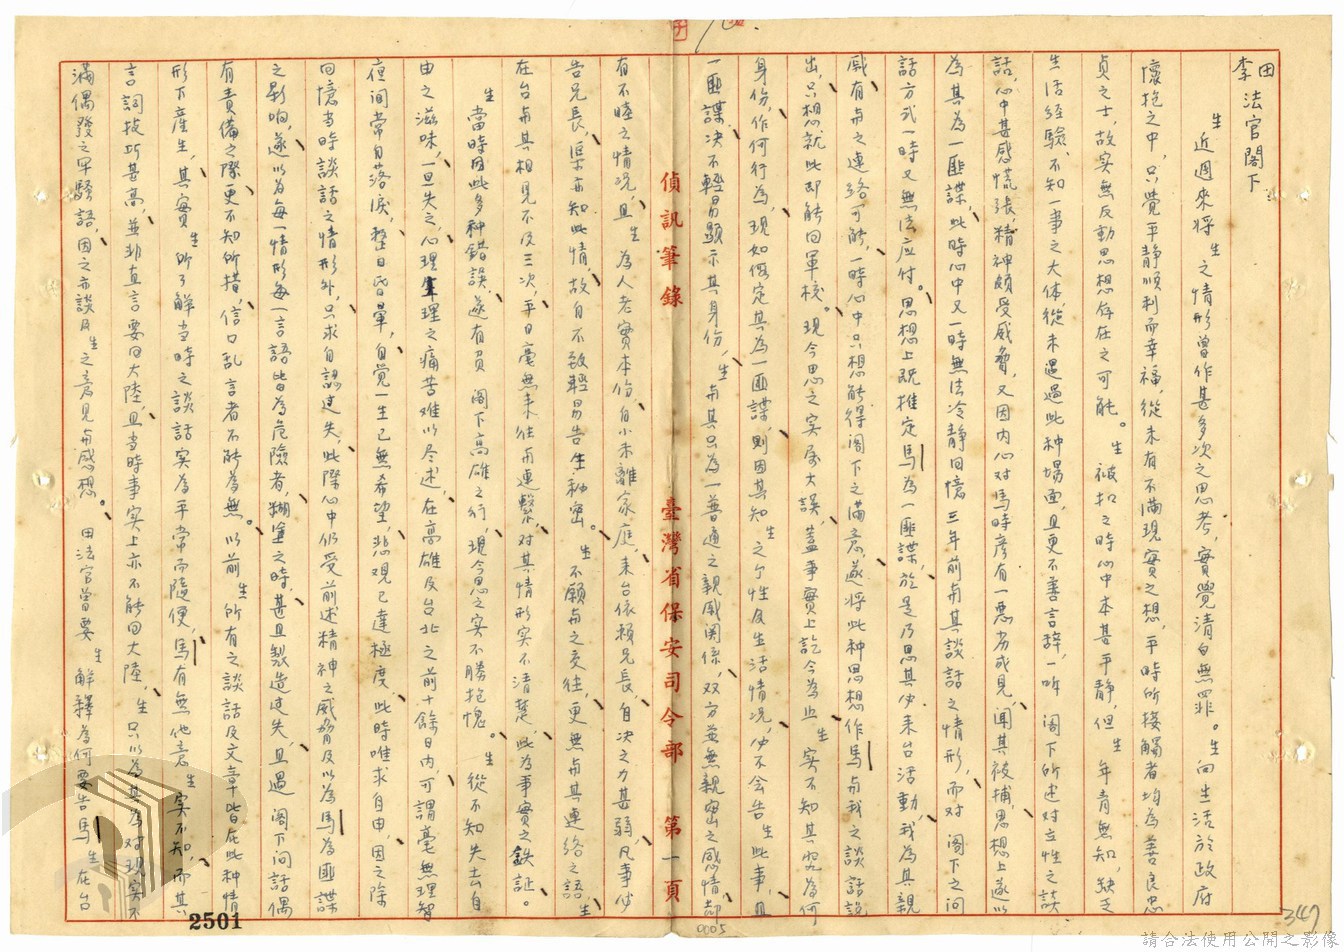 田
李 法官閣下
近週來將生之情形曾作甚多次之思考，實覺清白無罪。生向生活於政府
懷抱之中，只覺平靜順利而幸福，從未有不滿現實之想，平時所接觸者均為善良忠
貞之士，故實無反動思想存在之可能。生被扣之時心中本甚平靜，但生年青無知，缺乏
生活經驗，不知一事之大体，從未遇過此种場面，且更不善言辞，一听 閣下所述对立性之談
話，心中甚感慌张，精神頗受威脅，又因内心对馬時彦有一惡劣成見，闻其被捕，思想上遂以
為其為一匪諜，此時心中又一時無法冷静回憶三年前与其談話之情形，而对 閣下之问
話方式一時又無法应付。思想上既推定馬為一匪諜，於是乃思其必来台活動，我為其親
戚有与之連络可能，一時心中只想能得阁下之滿意，遂将此种思想作馬与我之談話説
出，只想就此即能回軍校。現今思之实属大誤，蓋事實上訖今為止生实不知其究為何
身份，作何行為，現如假定其為一匪諜，則因其知生之个性及生活情况，必不会告生此事，且
一匪諜决不輕易顯示其身份，生与其只為一普通之親戚関係，双方並無親密之感情，却
有不睦之情况，且生為人老實本份，自小未離家庭，来台依賴兄長，自决之力甚弱，凡事必
告兄長，渠亦知此情，故自不致輕易告生秘密。生不願与之交往，更無与其連络之語，生
在台与其相見不及三次，平日毫無来往与連繫，对其情形实不清楚，此為事實之鉄証。
生當時因此多种錯誤，遂有負 阁下高雄之行，現今思之实不勝抱愧。生從不知失去自
由之滋味，一旦失之，心理生理之痛苦难以尽述，在高雄及台北之前十餘日内，可謂毫無理智
夜间常自落淚，整日昏暈，自觉一生已無希望，悲观已達極度，此時唯求自由，因之除
回憶当時談話之情形外，只求自認过失，此際心中仍受前述精神之威脅及以為馬為匪諜
之影响，遂以為每一情形每一言語皆為危險者，糊塗之時，甚且製造过失，且遇 阁下问話偶
有責備之際，更不知所措，信口乱言者不能為無。以前生所有之談話及文章皆在此种情
形下產生，其實生所了解当時之談話实為平常而隨便，馬有無他意生实不知，而其
言詞技巧甚高，並非直言要回大陸，且当時事实上亦不能回大陸，生只以為其為对現实不
滿偶發之牢騷語，因之亦談及生之意見与感想。 田法官曾要生解釋為何要告馬生在台
偵訊筆錄 臺灣省保安司令部 第一頁
2501
0005
347
請合法使用公開之影像